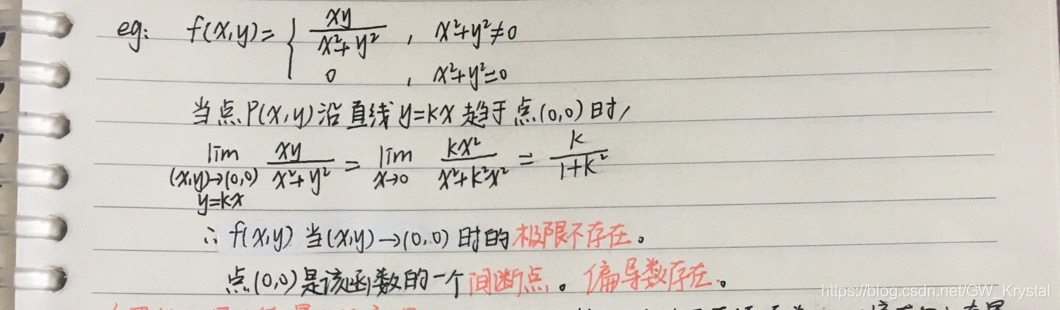 eg: f(x,y)= { xy/(x²+y²) , x²+y²≠0
0 , x²+y²=0
当点P(x,y)沿直线y=kx趋于点(0,0)时,
lim (x,y)→(0,0) y=kx xy/(x²+y²) = lim x→0 kx²/(x²+k²x²) = k/(1+k²)
∴ f(x,y)当(x,y)→(0,0)时的极限不存在。
点(0,0)是该函数的一个间断点。偏导数存在。
https://blog.csdn.net/GW_Krystal